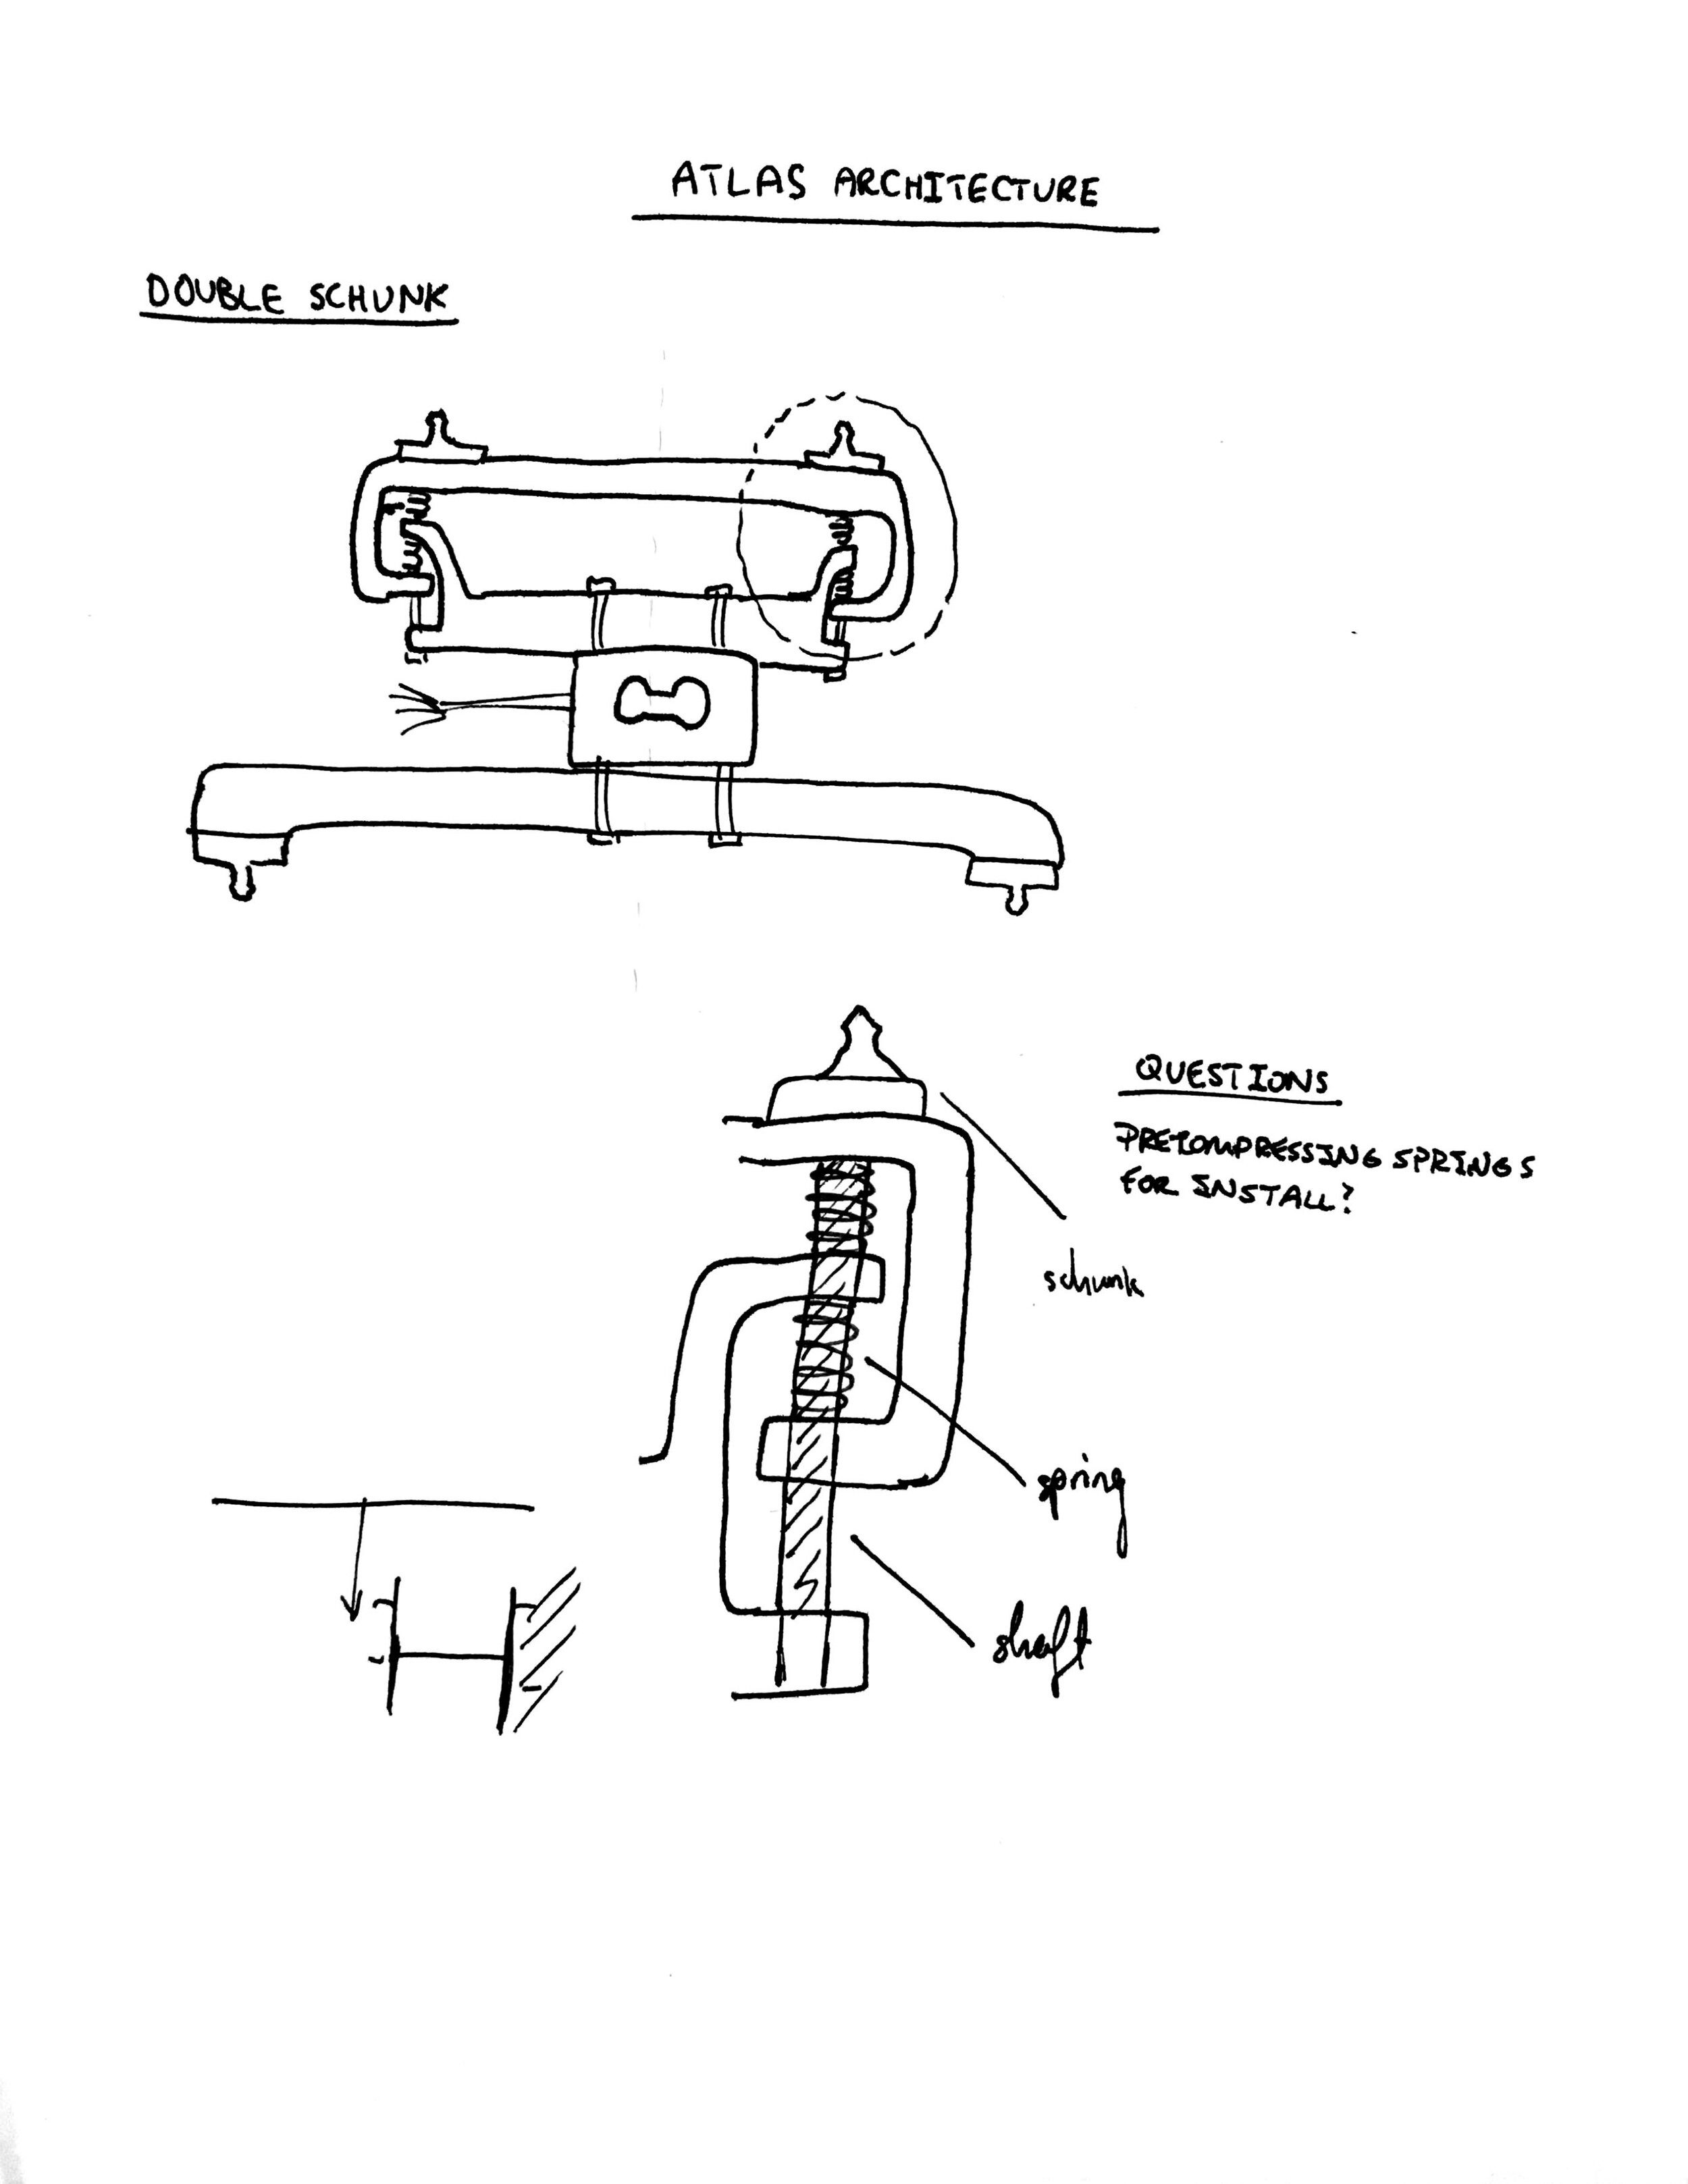 ATLAS ARCHITECTURE
DOUBLE SCHUNK
QUESTIONS
PRECOMPRESSING SPRINGS
FOR INSTALL?
schunk
spring
shaft